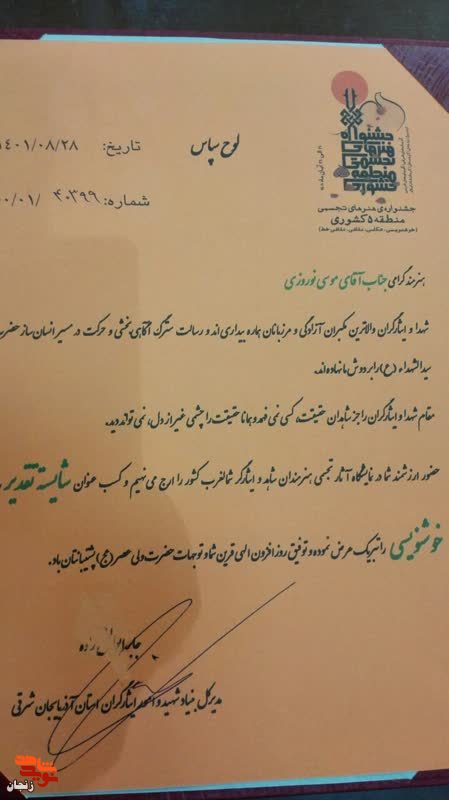 لوح سپاس
تاریخ: ۱۴۰۱/۰۸/۲۸
شماره: ۴۰۳۹۹ /۰۰/۰۱
جشنواره‌ی هنرهای تجسمی
منطقه ۵ کشوری
(خوشنویسی، عکاسی، نقاشی، نقاشی خط)
هنرمند گرامی جناب آقای موسی نوروزی
شهدا و ایثارگران والاترین مکبران آزادگی و مرزبانان هماره بیداری اند و رسالت سترگ آگاهی بخشی و حرکت در مسیر انسان ساز حضرت
سیدالشهداء (ع) را بر دوش ما نهاده اند.
مقام شهدا و ایثارگران را جز شاهدان حقیقت، کسی نمی فهمد و همانا حقیقت را چشمی غیر از دل، نمی تواند دید.
حضور ارزشمند شما در نمایشگاه آثار تجسمی هنرمندان شاهد و ایثارگر شمالغرب کشور را ارج می نهیم و کسب عنوان شایسته تقدیر
خوشنویسی را تبریک عرض نموده و توفیق روز افزون الهی قرین شما و توجهات حضرت ولی عصر (عج) پشتیبانتان باد.
مدیرکل بنیاد شهید و امور ایثارگران استان آذربایجان شرقی
نوید شاهد
زنجان